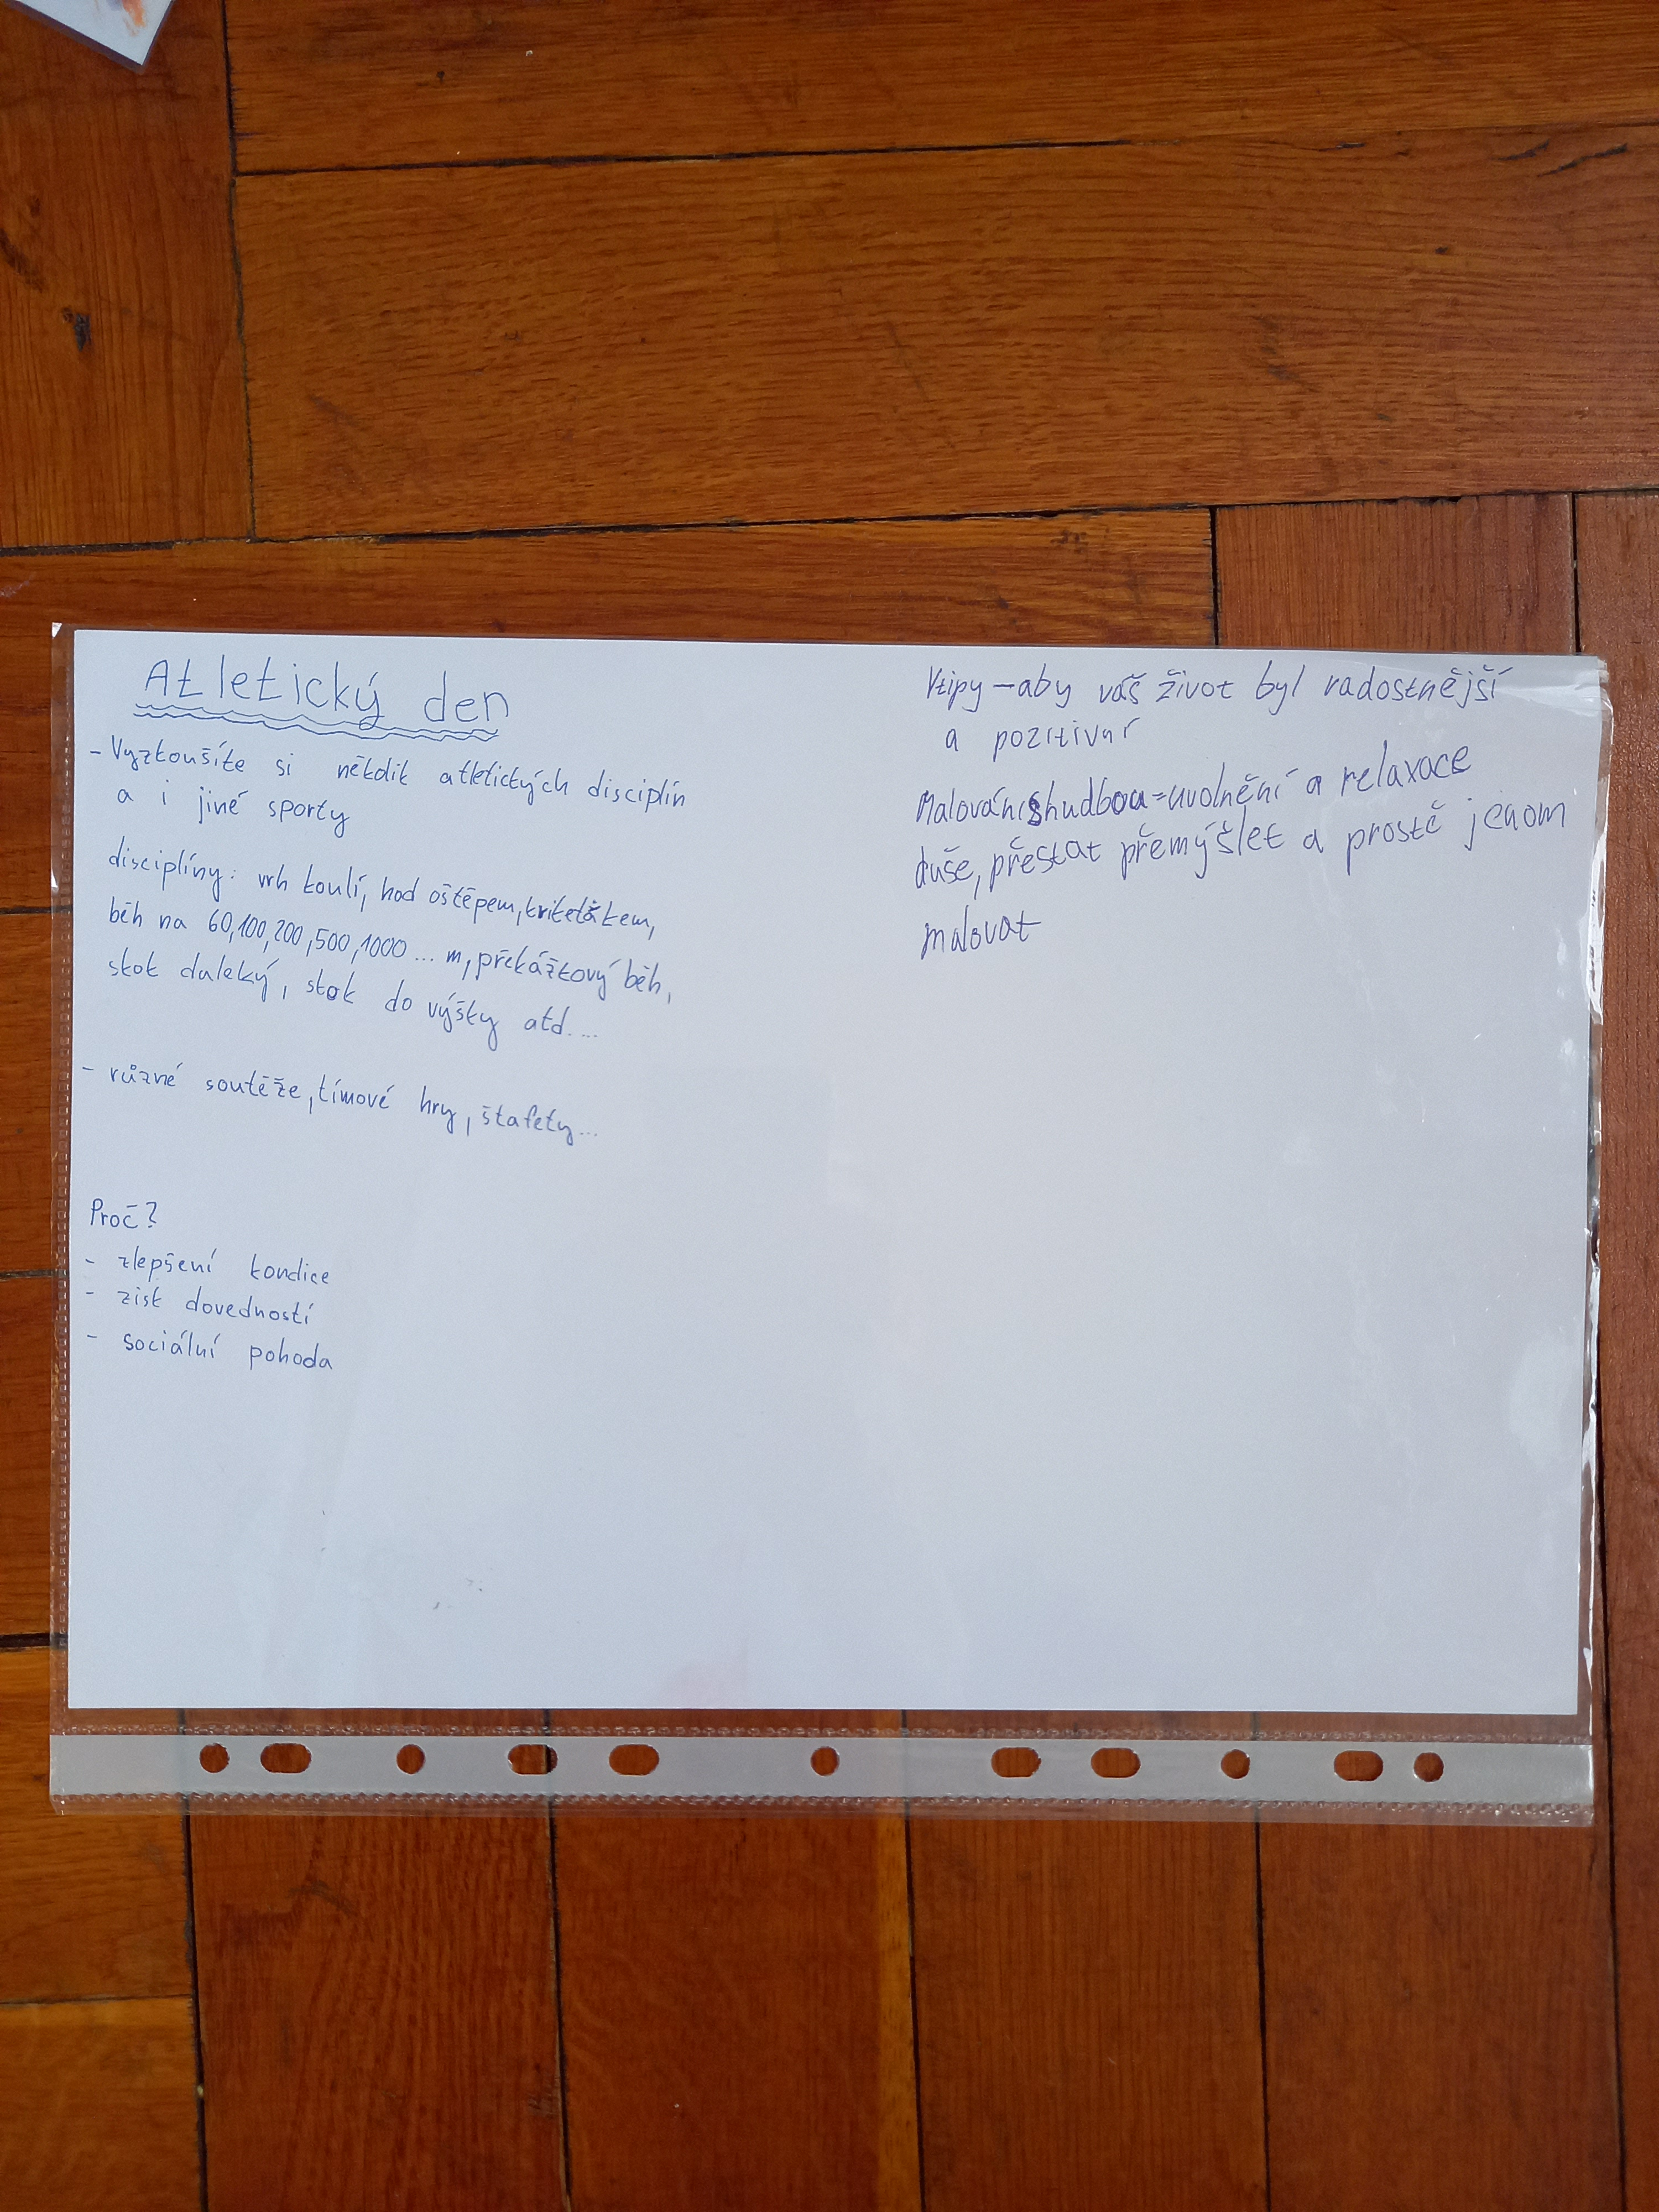 Atletický den
- Vyzkoušíte si několik atletických disciplín
a i jiné sporty
disciplíny: vrh koulí, hod oštěpem, kriketákem,
běh na 60, 100, 200, 500, 1000 ... m, překážkový běh,
skok daleký, skok do výšky atd. ...
- různé soutěže, tímové hry, štafety ...
Proč?
- zlepšení kondice
- zisk dovedností
- sociální pohoda
Vtipy - aby váš život byl radostnější
a pozitivní
Malování s hudbou = uvolnění a relaxace
duše, přestat přemýšlet a prostě jenom
malovat